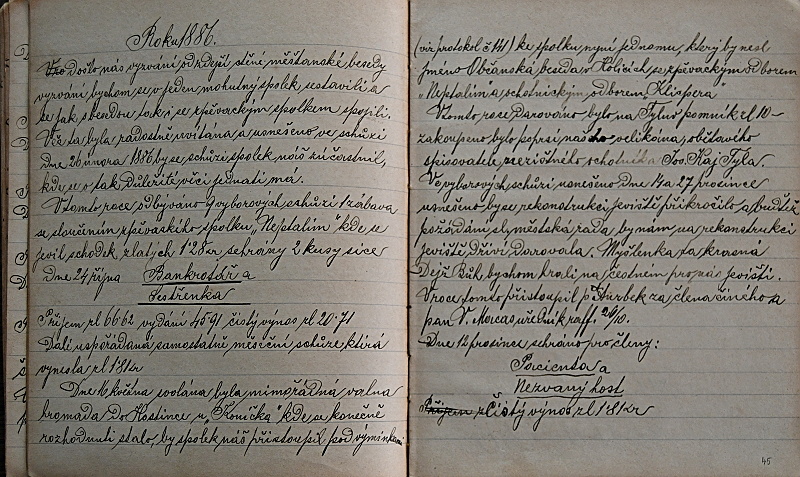 Roku 1886.
došlo nás vyzvání od zdejší ctěné měšťanské besedy
vyzvání bychom se v jeden mohutný spolek sestavili a
se jak s besedou tak i se zpěvackým spolkem spojili.
Věc ta byla radostně uvítana a usnešeno ve schůzi
dne 26 února 1886 by se schůzi spolek náš zúčastnil,
kde se o tak důležité věci jednati má.
V tomto roce odbýváno 9 vyborových schůzí 1 zábava
se sloučením zpěvackého spolku „Neptalím" kde se
jevil schodek zlatých 1·28 kr sehrány 2 kusy sice
Dne 24 října Bankrotář a
Sestřenka
Příjem zl 66·62 vydání 45·91 čistý výnos zl 20·71
Dalé uspořádana samostatně měsíční schůze která
vynesla zl 1·81 kr
Dne 16 května svolána byla mimořádná valna
hromada do Hostince u „Koníčka" kde se konečně
rozhodnutí stalo, by spolek náš přistoupil pod výmínkami
(viz protokol č 141) ke spolku nyní jednomu, který by nesl
jméno Občanská beseda v Kolicích, se zpěvackým odborem
„Neptalím a ochotnickým odborem Klicpera"
V tomto roce darováno bylo na Tylův pomník zl 10—
zakoupeno bylo poprsí našeho velikána, obětavého
spisovatele nezištného ochotníka Jos. Kaj. Tyla.
Ve vyborových schůzí usnešeno dne 14 a 27 prosince
usnešeno by se rekonstrukci jeviště přikročilo a budtež
požádání sl. městská rada by nám na rekonstrukci
jeviště dříví darovala. Myšlenka ta krasná
Dejž Bůh, bychom hrali na čestnem pro nás jevišti.
V roce tomto přistoupil p Štürbek za člena činého a
pan V. Morcas uředník raff. 20/10.
Dne 12 prosince sehráno pro členy:
Porcienta a
Nezvaný host
Příjem zl Čistý výnos zl 1·81 kr
45